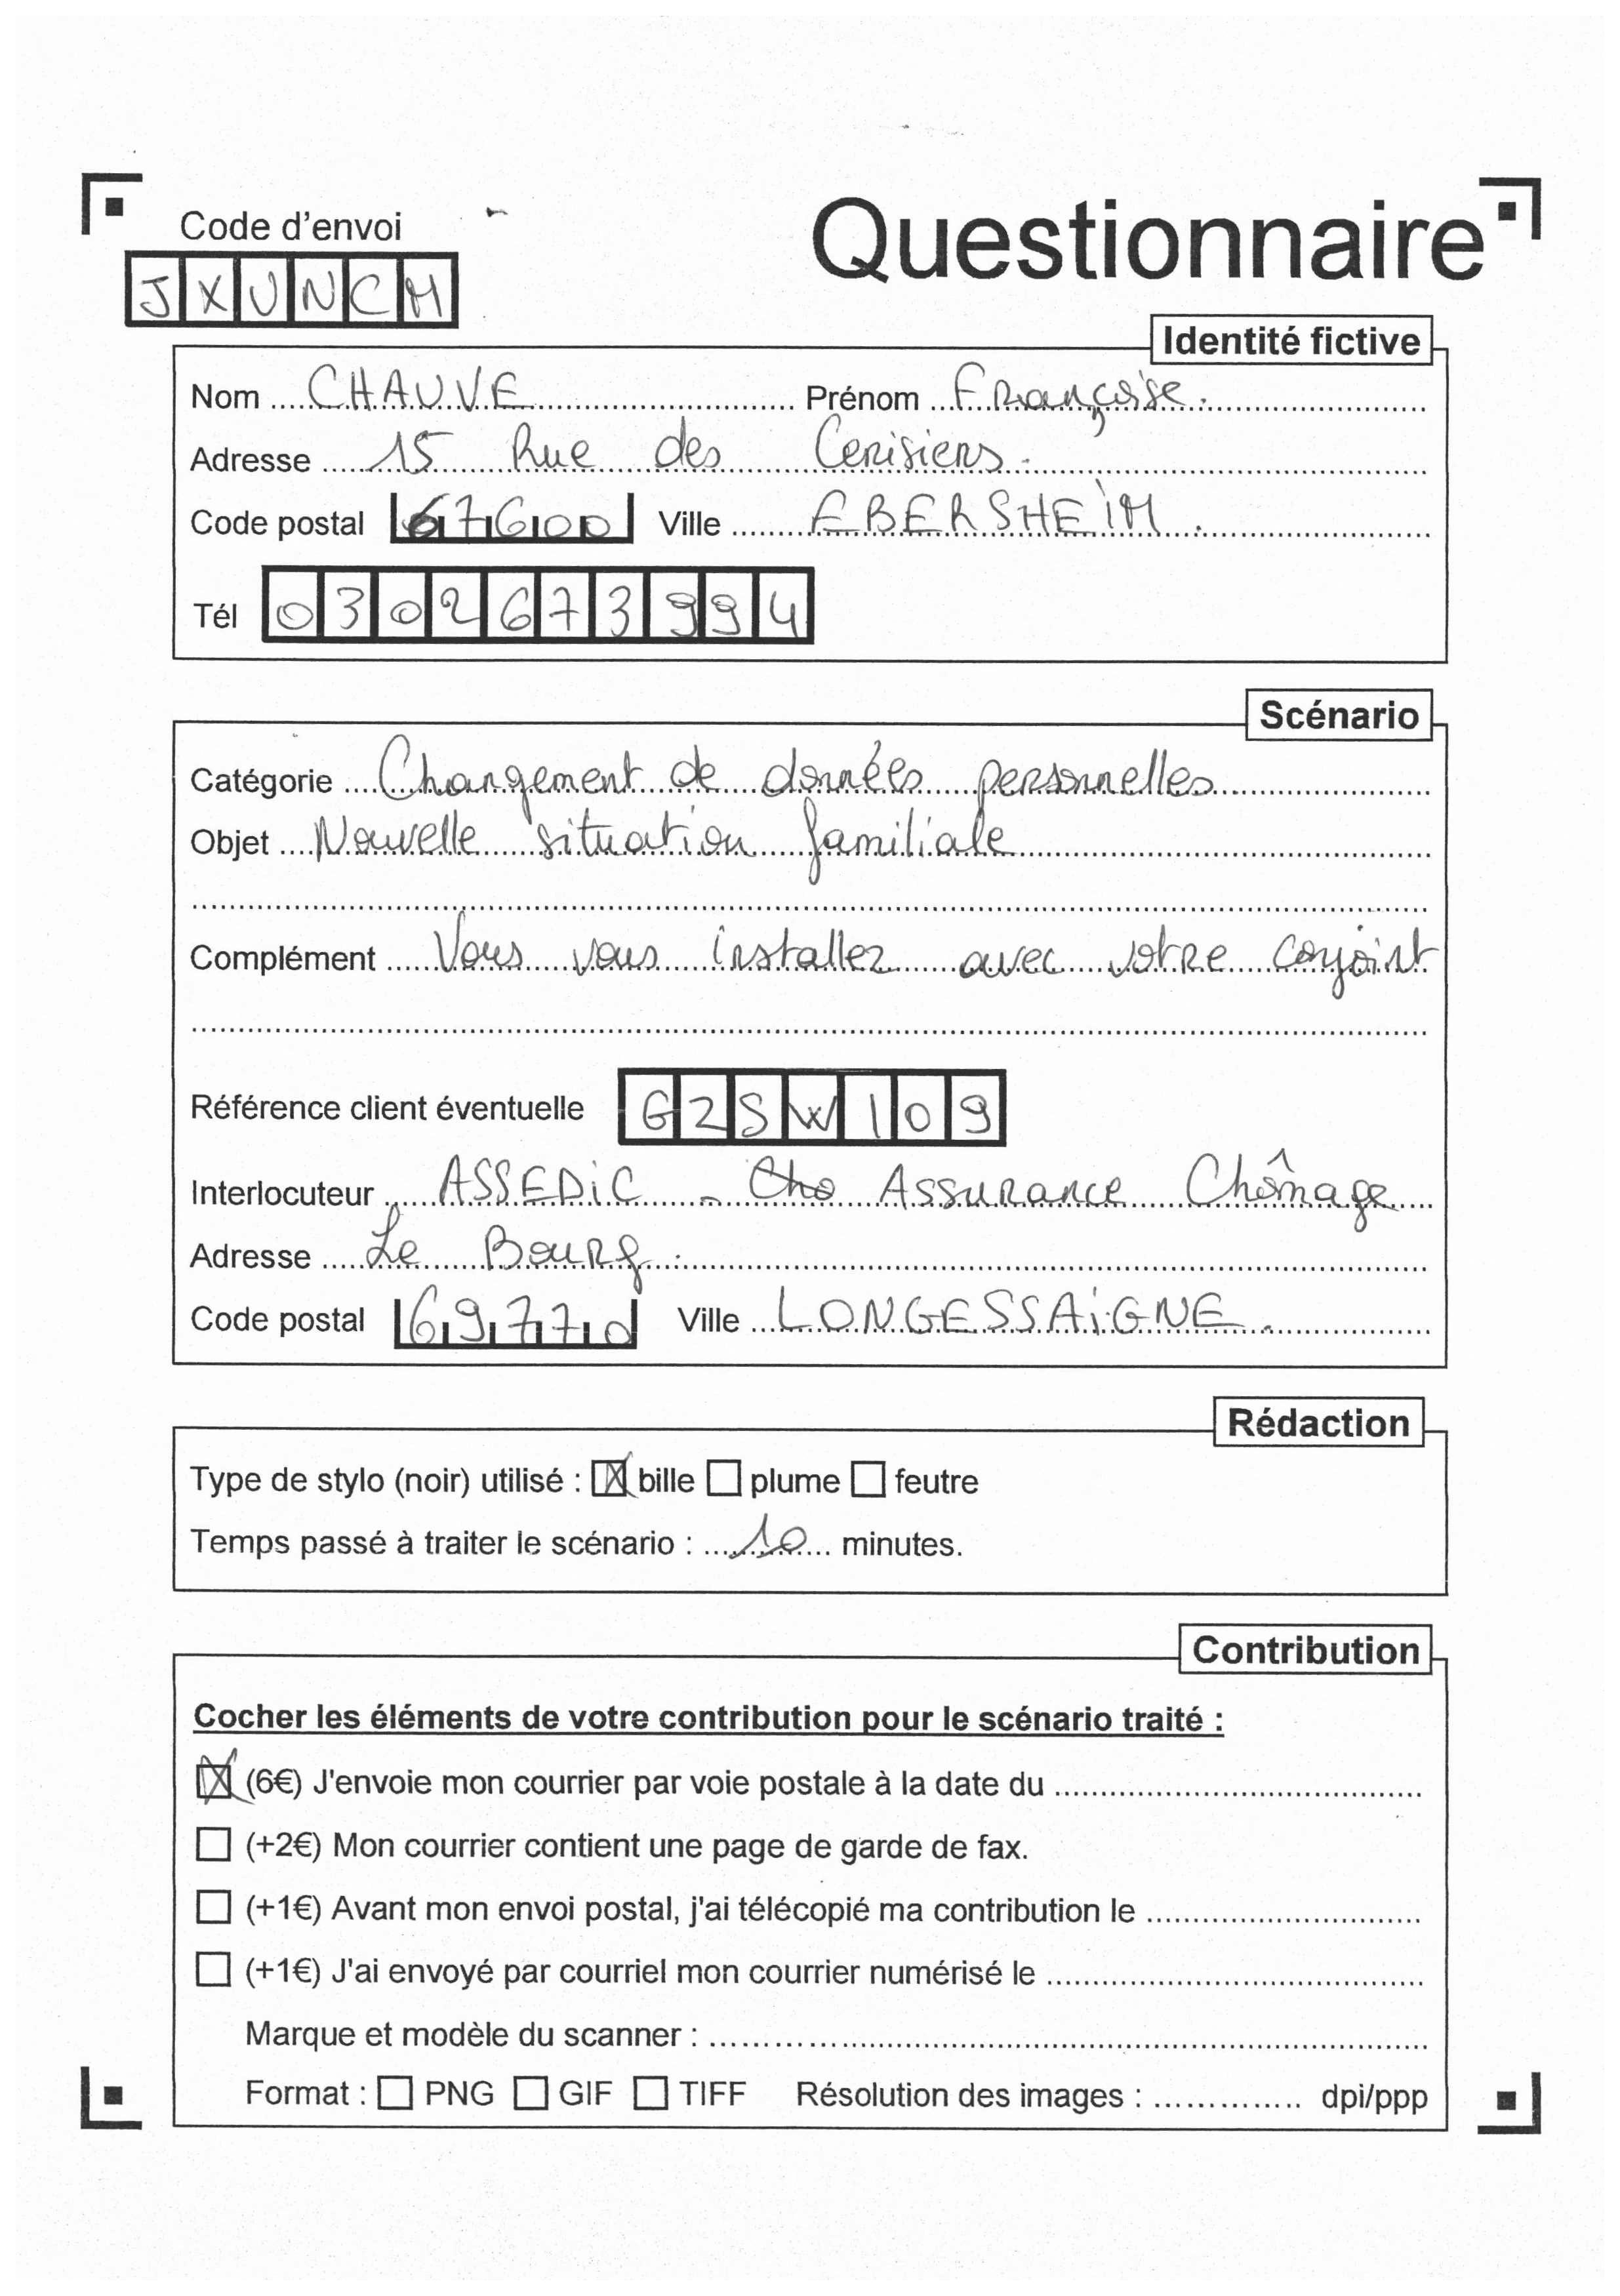 Code d'envoi
Questionnaire
JXUNCM
Identité fictive
Nom CHAUVE Prénom Françoise.
Adresse 15 Rue des Cerisiers.
Code postal 67600 Ville EBERSHEIM.
Tél 0302673994
Scénario
Catégorie Changement de données personnelles
Objet Nouvelle situation familiale
Complément Vous vous installez avec votre conjoint
Référence client éventuelle G2SW109
Interlocuteur ASSEDIC - Cho Assurance Chômage
Adresse Le Bourg.
Code postal 69770 Ville LONGESSAIGNE.
Rédaction
Type de stylo (noir) utilisé : bille plume feutre
Temps passé à traiter le scénario : 10 minutes.
Contribution
Cocher les éléments de votre contribution pour le scénario traité :
(6€) J'envoie mon courrier par voie postale à la date du
(+2€) Mon courrier contient une page de garde de fax.
(+1€) Avant mon envoi postal, j'ai télécopié ma contribution le
(+1€) J'ai envoyé par courriel mon courrier numérisé le
Marque et modèle du scanner :
Format : PNG GIF TIFF Résolution des images : dpi/ppp